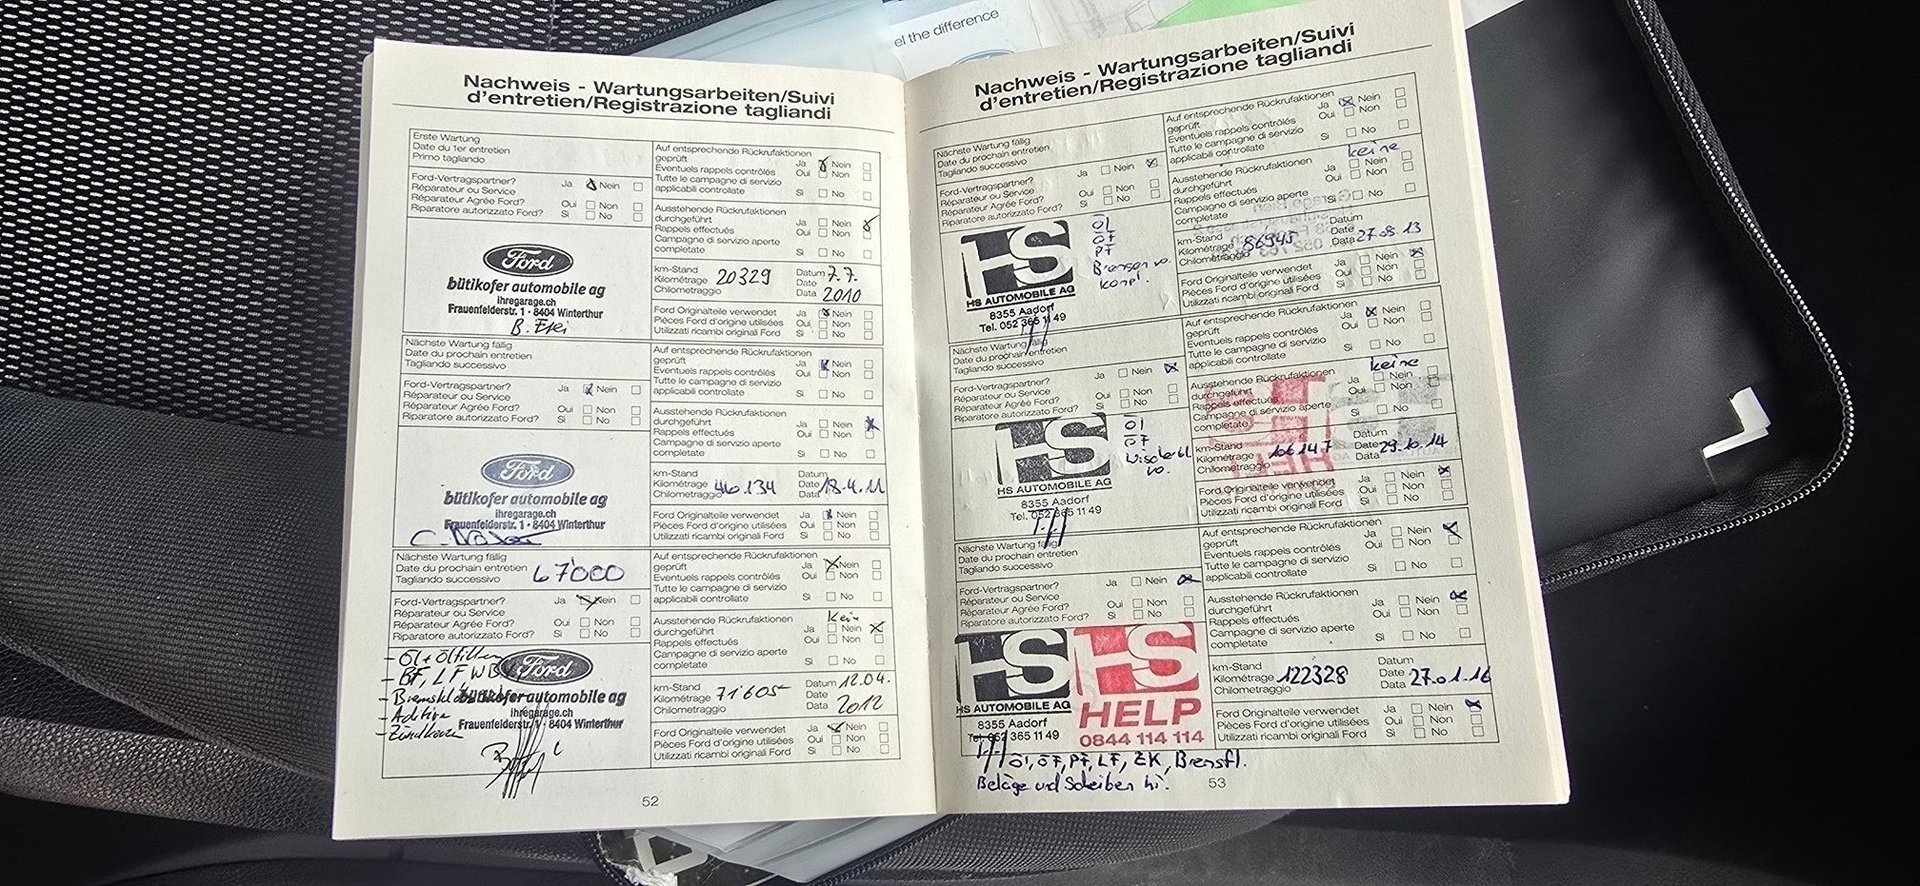 el the difference
Nachweis - Wartungsarbeiten/Suivi
d'entretien/Registrazione tagliandi
Erste Wartung
Date du 1er entretien
Primo tagliando
Ford-Vertragspartner? Ja Nein
Réparateur ou Service
Réparateur Agrée Ford? Oui Non
Riparatore autorizzato Ford? Si No
Ford
bütikofer automobile ag
ihregarage.ch
Frauenfelderstr. 1 · 8404 Winterthur
B. Frei
Auf entsprechende Rückrufaktionen
geprüft Ja Nein
Eventuels rappels contrôlés Oui Non
Tutte le campagne di servizio
applicabili controllate Si No
Ausstehende Rückrufaktionen
durchgeführt Ja Nein
Rappels effectués Oui Non
Campagne di servizio aperte
completate Si No
km-Stand Datum 7.7.
Kilométrage 20329 Date
Chilometraggio Data 2010
Ford Originalteile verwendet Ja Nein
Pièces Ford d'origine utilisées Oui Non
Utilizzati ricambi originali Ford Si No
Nächste Wartung fällig
Date du prochain entretien
Tagliando successivo
Ford-Vertragspartner? Ja Nein
Réparateur ou Service
Réparateur Agrée Ford? Oui Non
Riparatore autorizzato Ford? Si No
Ford
bütikofer automobile ag
ihregarage.ch
Frauenfelderstr. 1 · 8404 Winterthur
Auf entsprechende Rückrufaktionen
geprüft Ja Nein
Eventuels rappels contrôlés Oui Non
Tutte le campagne di servizio
applicabili controllate Si No
Ausstehende Rückrufaktionen
durchgeführt Ja Nein
Rappels effectués Oui Non
Campagne di servizio aperte
completate Si No
km-Stand Datum
Kilométrage 46.134 Date
Chilometraggio Data 18.4.11
Ford Originalteile verwendet Ja Nein
Pièces Ford d'origine utilisées Oui Non
Utilizzati ricambi originali Ford Si No
Nächste Wartung fällig
Date du prochain entretien 67000
Tagliando successivo
Ford-Vertragspartner? Ja Nein
Réparateur ou Service
Réparateur Agrée Ford? Oui Non
Riparatore autorizzato Ford? Si No
- Öl + Ölfilter
- BF, LF WB
Ford
bütikofer automobile ag
ihregarage.ch
Frauenfelderstr. 1 · 8404 Winterthur
Auf entsprechende Rückrufaktionen
geprüft Ja Nein
Eventuels rappels contrôlés Oui Non
Tutte le campagne di servizio
applicabili controllate Si No
Ausstehende Rückrufaktionen Kein
durchgeführt Ja Nein
Rappels effectués Oui Non
Campagne di servizio aperte
completate Si No
km-Stand Datum 12.04.
Kilométrage 71605 Date
Chilometraggio Data 2012
Ford Originalteile verwendet Ja Nein
Pièces Ford d'origine utilisées Oui Non
Utilizzati ricambi originali Ford Si No
52
Nachweis - Wartungsarbeiten/Suivi
d'entretien/Registrazione tagliandi
Nächste Wartung fällig
Date du prochain entretien
Tagliando successivo
Ford-Vertragspartner? Ja Nein
Réparateur ou Service
Réparateur Agrée Ford? Oui Non
Riparatore autorizzato Ford? Si No
HS
HS AUTOMOBILE AG
8355 Aadorf
Tel. 052 365 11 49
ÖL
ÖF
PF
kompl.
Auf entsprechende Rückrufaktionen
geprüft Ja Nein
Eventuels rappels contrôlés Oui Non
Tutte le campagne di servizio
applicabili controllate Si No
keine
Ausstehende Rückrufaktionen
durchgeführt Ja Nein
Rappels effectués Oui Non
Campagne di servizio aperte
completate Si No
km-Stand Datum
Kilométrage 86945 Date
Chilometraggio Data 27.08.13
Ford Originalteile verwendet Ja Nein
Pièces Ford d'origine utilisées Oui Non
Utilizzati ricambi originali Ford Si No
Nächste Wartung fällig
Date du prochain entretien
Tagliando successivo
Ford-Vertragspartner? Ja Nein
Réparateur ou Service
Réparateur Agrée Ford? Oui Non
Riparatore autorizzato Ford? Si No
HS
HS AUTOMOBILE AG
8355 Aadorf
Tel. 052 365 11 49
Öl
ÖF
Auf entsprechende Rückrufaktionen
geprüft Ja Nein
Eventuels rappels contrôlés Oui Non
Tutte le campagne di servizio
applicabili controllate Si No
keine
Ausstehende Rückrufaktionen
durchgeführt Ja Nein
Rappels effectués Oui Non
Campagne di servizio aperte
completate Si No
km-Stand Datum
Kilométrage 106147 Date 29.10.14
Chilometraggio Data
Ford Originalteile verwendet Ja Nein
Pièces Ford d'origine utilisées Oui Non
Utilizzati ricambi originali Ford Si No
Nächste Wartung fällig
Date du prochain entretien
Tagliando successivo
Ford-Vertragspartner? Ja Nein
Réparateur ou Service
Réparateur Agrée Ford? Oui Non
Riparatore autorizzato Ford? Si No
HS HS
HS AUTOMOBILE AG HELP
8355 Aadorf
Tel. 052 365 11 49 0844 114 114
Auf entsprechende Rückrufaktionen
geprüft Ja Nein
Eventuels rappels contrôlés Oui Non
Tutte le campagne di servizio
applicabili controllate Si No
Ausstehende Rückrufaktionen
durchgeführt Ja Nein
Rappels effectués Oui Non
Campagne di servizio aperte
completate Si No
km-Stand Datum
Kilométrage 122328 Date
Chilometraggio Data 27.01.16
Ford Originalteile verwendet Ja Nein
Pièces Ford d'origine utilisées Oui Non
Utilizzati ricambi originali Ford Si No
Öl, ÖF, PF, LF, ZK, Bremsfl.
Beläge und Scheiben hi.
53